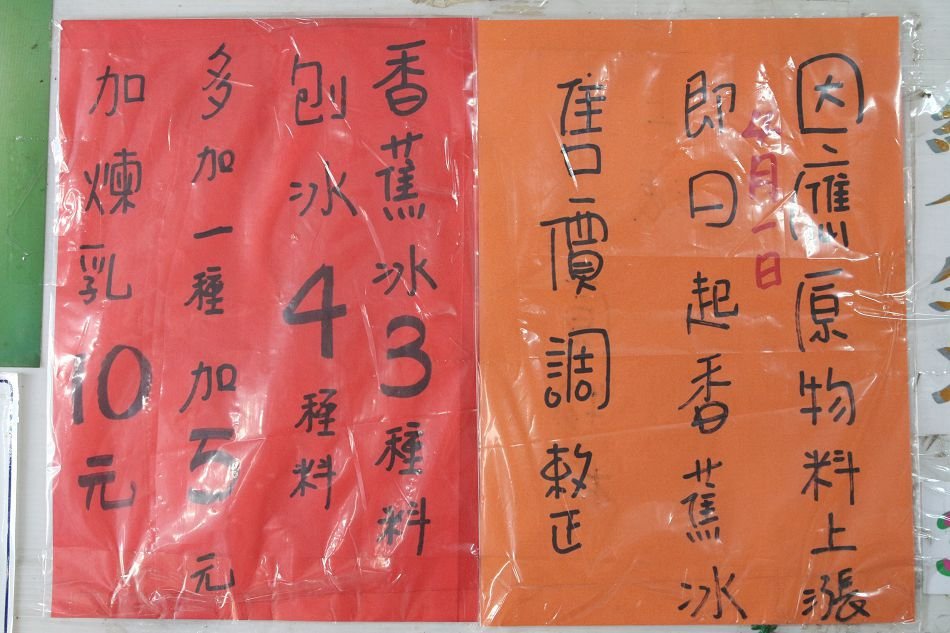 因應原物料上漲
月一日
即日起香蕉冰
售價調整
香蕉冰3種料
刨冰4種料
多加一種加5元
加煉乳10元